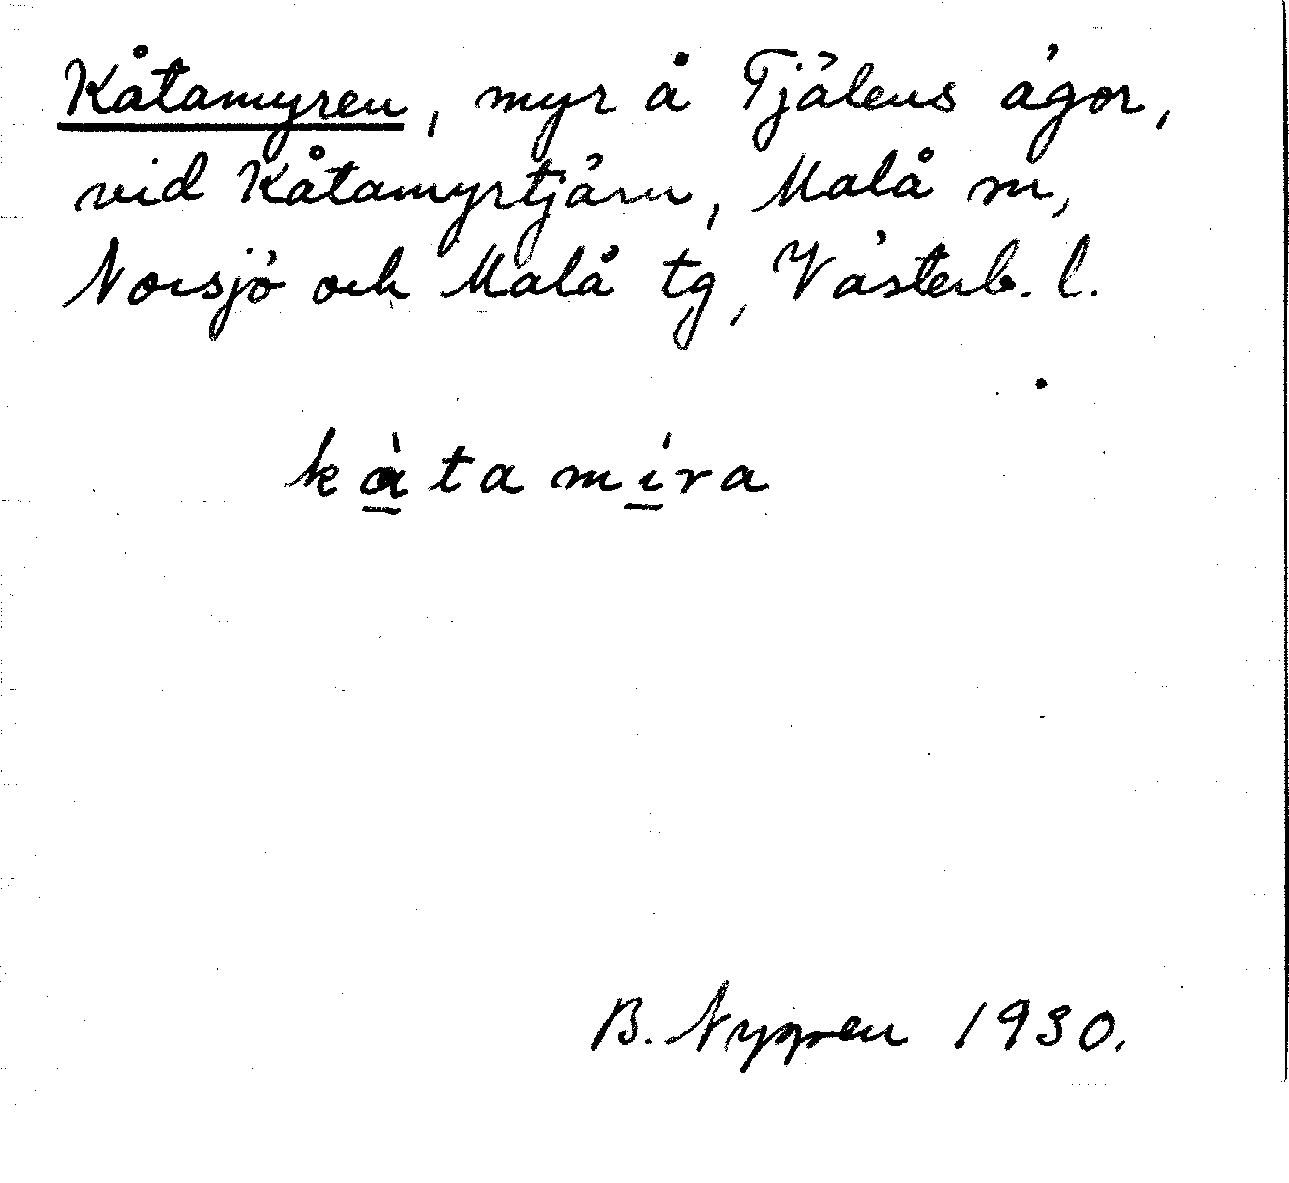 Kåtamyren, myr å Tjälens ägor,
vid Kåtamyrtjärn, Malå sn,
Norsjö och Malå tg, Västerb. l.
kàtamíra
B. Nygren 1930.